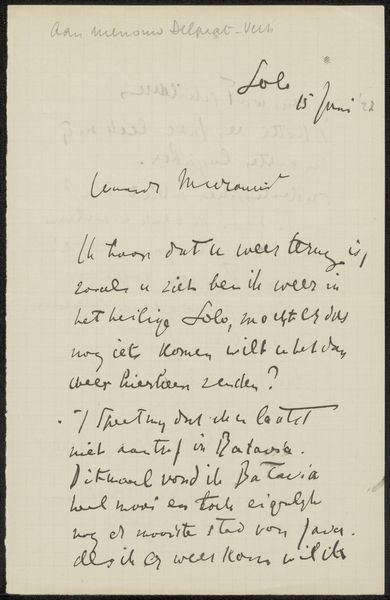 Aan mevrouw Delprat-Veth
Solo
15 Juni
Mevrouw
Ik hoor dat u weer terug is,
zooals u ziet ben ik weer in
het heilige Solo, mocht er dus
nog iets komen wilt u het dan
weer hierheen zenden?
't Speet mij dat ik u laatst
niet aantrof in Batavia.
Ditmaal vond ik Batavia
heel mooi en toch eigelijk
nog de mooiste stad van Java.
als ik er weer kom wil ik